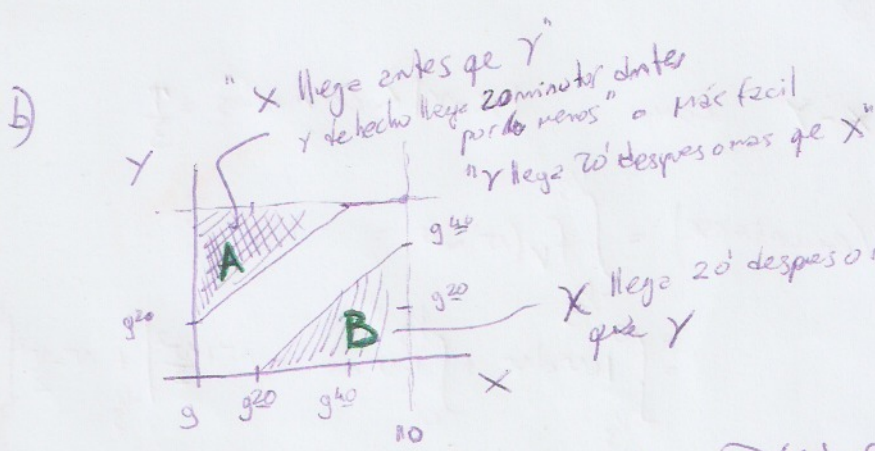 b)
"X llega antes qe Y"
Y de hecho llega 20 minutos antes
por lo menos" o más facil
"Y llega 20' despues o mas qe X"
Y
A
9 40
9 20
9 20
B
X llega 20' despues o
que Y
X
9
9 20
9 40
10